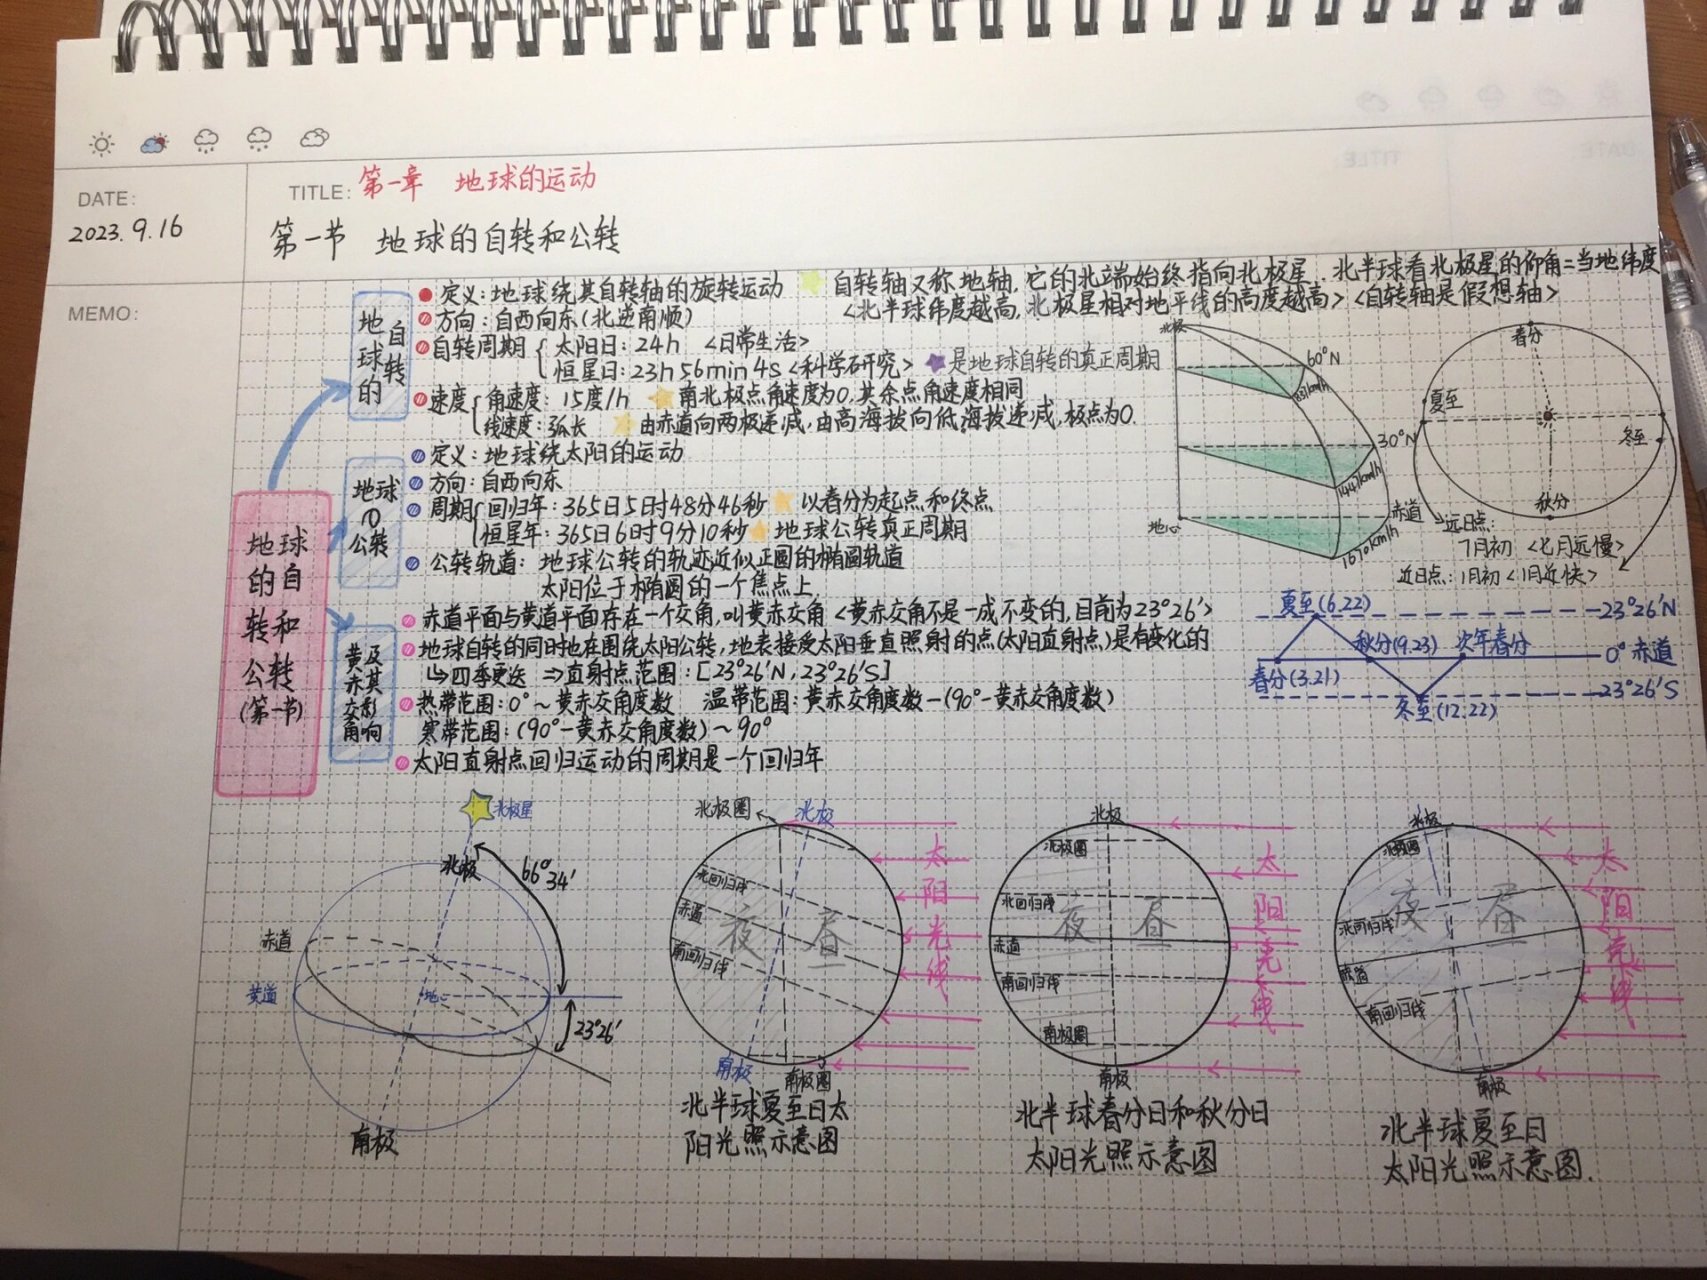 DATE:
2023.9.16
TITLE: 第一章 地球的运动
第一节 地球的自转和公转
MEMO:
地球的自转和公转(第一节)
地球的自转
定义:地球绕其自转轴的旋转运动 自转轴又称地轴,它的北端始终指向北极星,北半球看北极星的仰角=当地纬度
<北半球纬度越高,北极星相对地平线的高度越高><自转轴是假想轴>
方向:自西向东(北逆南顺)
自转周期 太阳日:24h <日常生活>
恒星日:23h56min4s<科学研究> 是地球自转的真正周期
速度 角速度:15度/h 南北极点角速度为0,其余点角速度相同
线速度:弧长 由赤道向两极递减,由高海拔向低海拔递减,极点为0.
地球的公转
定义:地球绕太阳的运动
方向:自西向东
周期 回归年:365日5时48分46秒 以春分为起点和终点
恒星年:365日6时9分10秒 地球公转真正周期
公转轨道:地球公转的轨迹近似正圆的椭圆轨道
太阳位于椭圆的一个焦点上
黄赤交角及其影响
赤道平面与黄道平面存在一个交角,叫黄赤交角<黄赤交角不是一成不变的,目前为23°26′>
地球自转的同时也在围绕太阳公转,地表接受太阳垂直照射的点(太阳直射点)是有变化的
↳四季更迭 ⇒直射点范围:[23°26′N,23°26′S]
热带范围:0°~黄赤交角度数 温带范围:黄赤交角度数-(90°-黄赤交角度数)
寒带范围:(90°-黄赤交角度数)~90°
太阳直射点回归运动的周期是一个回归年
北极
60°N
837km/h
30°N
1447km/h
赤道
1670km/h
地心
春分
夏至
冬至
秋分
远日点:
7月初 <七月远慢>
近日点:1月初<1月近快>
夏至(6.22)
23°26′N
秋分(9.23)
次年春分
0°赤道
春分(3.21)
23°26′S
冬至(12.22)
北极星
北极
66°34′
赤道
黄道
地心
23°26′
南极
北极圈
北极
北回归线
赤道
南回归线
夜 昼
太阳光线
南极
南极圈
北半球夏至日太
阳光照示意图
北极
北极圈
北回归线
夜 昼
赤道
南回归线
南极圈
太阳光线
南极
北半球春分日和秋分日
太阳光照示意图
北极
北极圈
夜 昼
北回归线
赤道
南回归线
太阳光线
南极
北半球夏至日
太阳光照示意图.